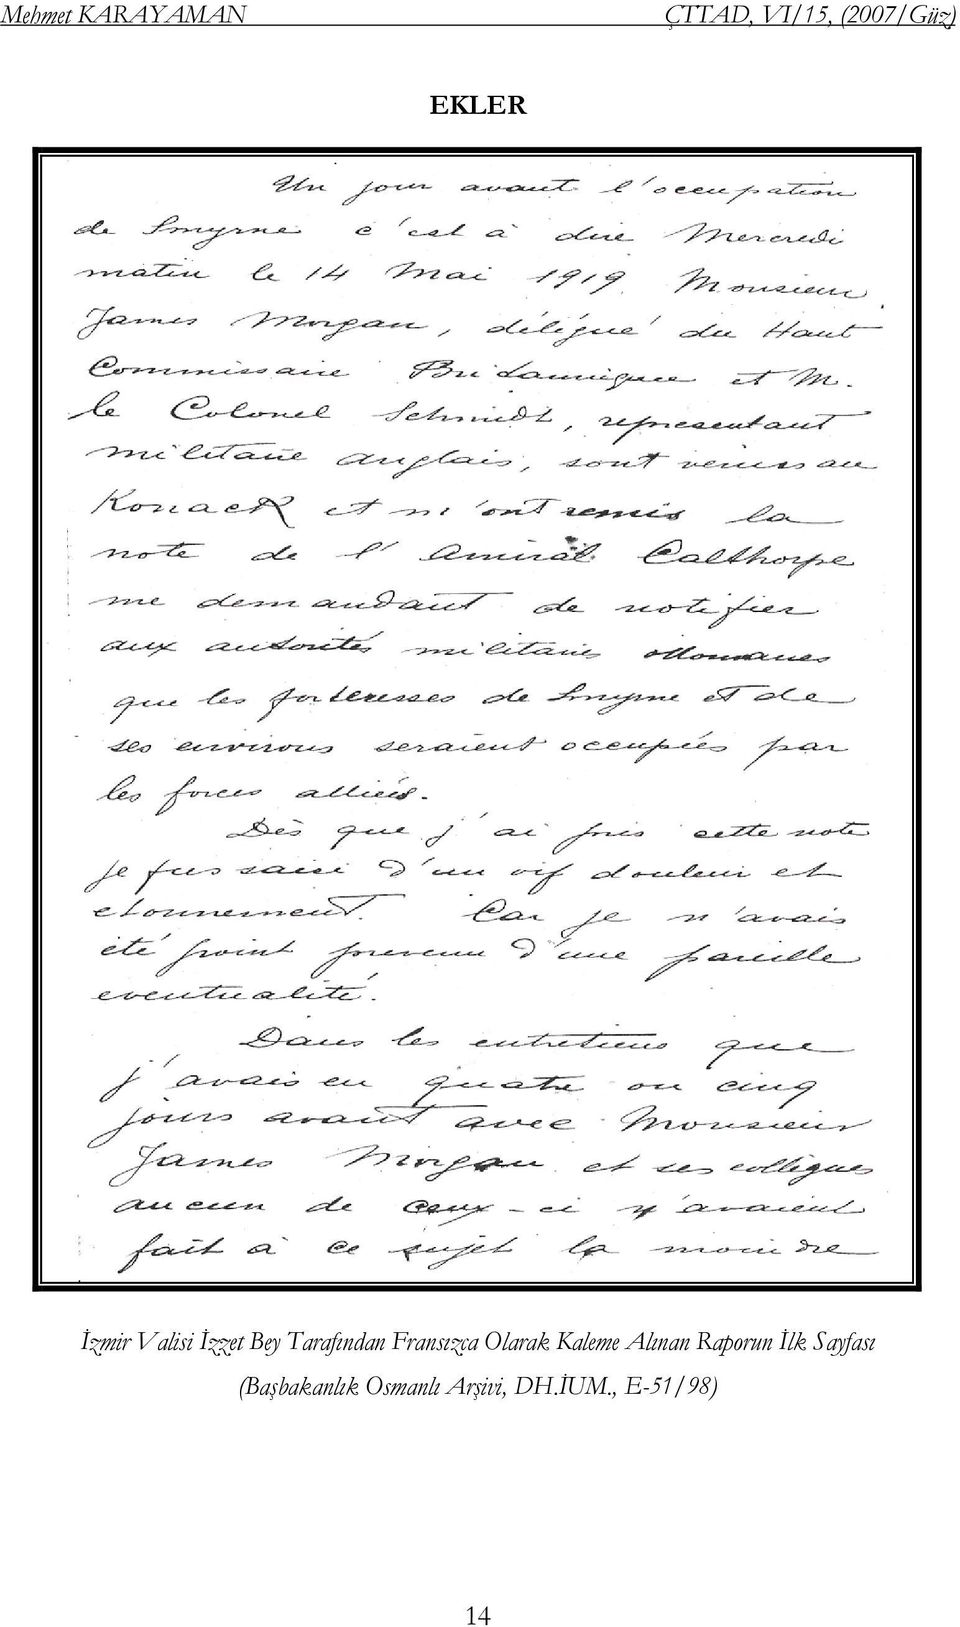 Mehmet KARAYAMAN ÇTTAD, VI/15, (2007/Güz)
EKLER
Un jour avant l'occupation
de Smyrne c'est à dire Mercredi
matin le 14 Mai 1919. Monsieur
James Morgan, délégué du Haut
Commissaire Britannique et M.
le Colonel Schmidt, representant
militaire anglais, sont venus au
Konack et m'ont remis la
note de l'Amiral Calthorpe
me demandant de notifier
aux autorités militaires ottomanes
que les forteresses de Smyrne et de
ses environs seraient occupées par
les forces alliées.
Dès que j'ai pris cette note
je fus saisi d'un vif douleur et
etonnement. Car je n'avais
été point prevenu d'une pareille
eventualité.
Dans les entretiens que
j'avais eu quatre ou cinq
jours avant avec Monsieur
James Morgan et ses collègues
aucun de ceux-ci n'avaient
fait à ce sujet la moindre
İzmir Valisi İzzet Bey Tarafından Fransızca Olarak Kaleme Alınan Raporun İlk Sayfası
(Başbakanlık Osmanlı Arşivi, DH.İUM., E-51/98)
14